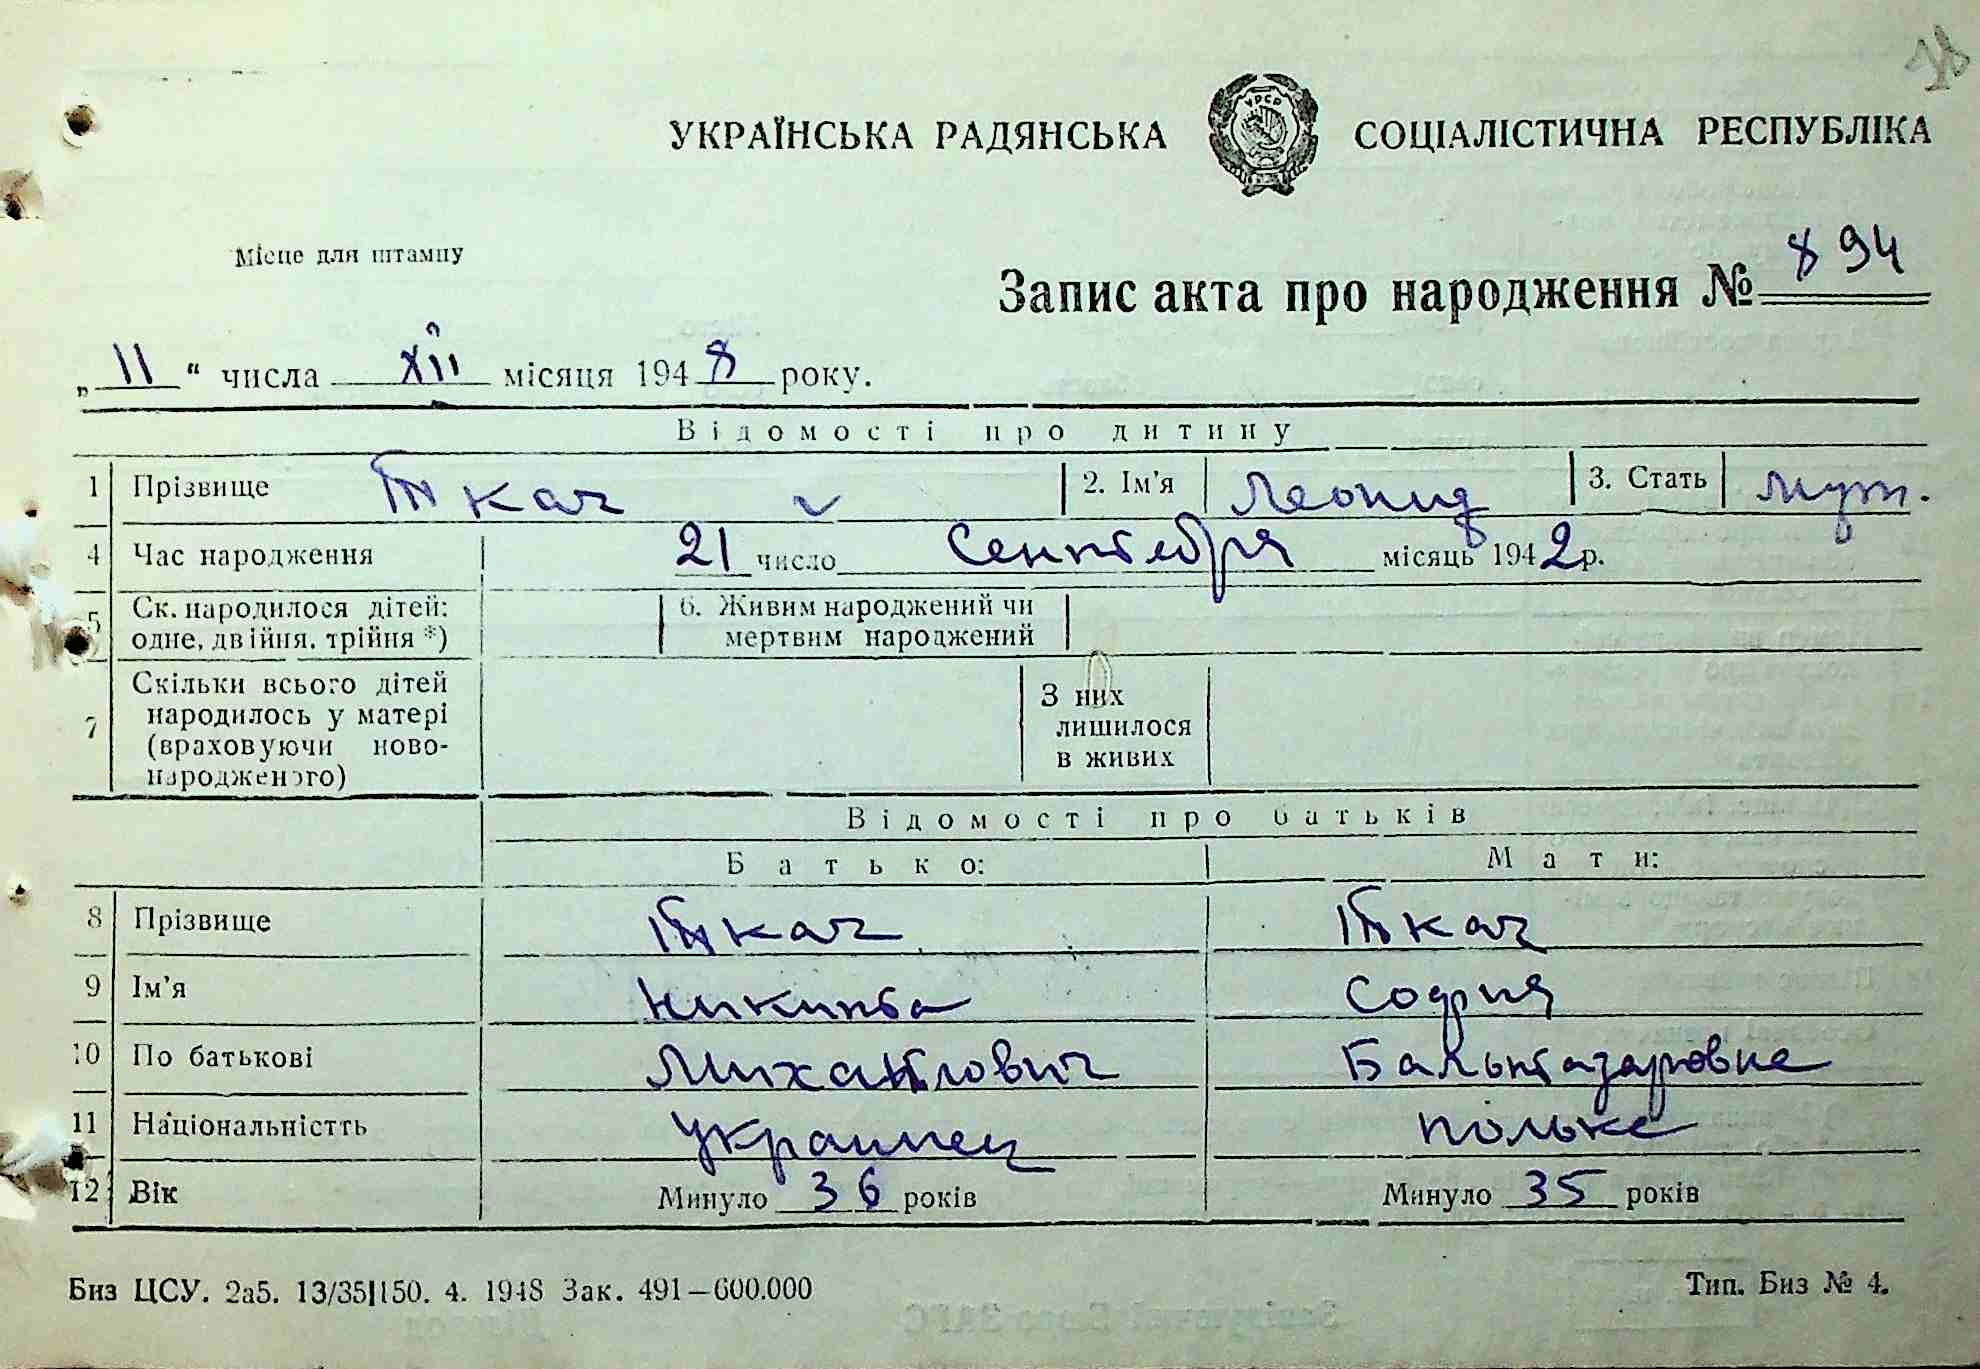 УКРАЇНСЬКА РАДЯНСЬКА СОЦІАЛІСТИЧНА РЕСПУБЛІКА
УРСР
Місце для штампу
Запис акта про народження № 894
„ 11 “ числа XII місяця 1948 року.
Відомості про дитину
1 Прізвище Ткач 2. Ім'я Леонид 3. Стать муж.
4 Час народження 21 число Сентября місяць 1942 р.
5 Ск. народилося дітей: одне, двійня, трійня *) 6. Живим народжений чи мертвим народжений
7 Скільки всього дітей народилось у матері (враховуючи новонародженого) З них лишилося в живих
Відомості про батьків
Батько: Мати:
8 Прізвище Ткач Ткач
9 Ім'я Никита София
10 По батькові Михайлович Бальтазаровна
11 Національністть Украинец полька
12 Вік Минуло 36 років Минуло 35 років
Биз ЦСУ. 2а5. 13/35|150. 4. 1948 Зак. 491—600.000 Тип. Биз № 4.